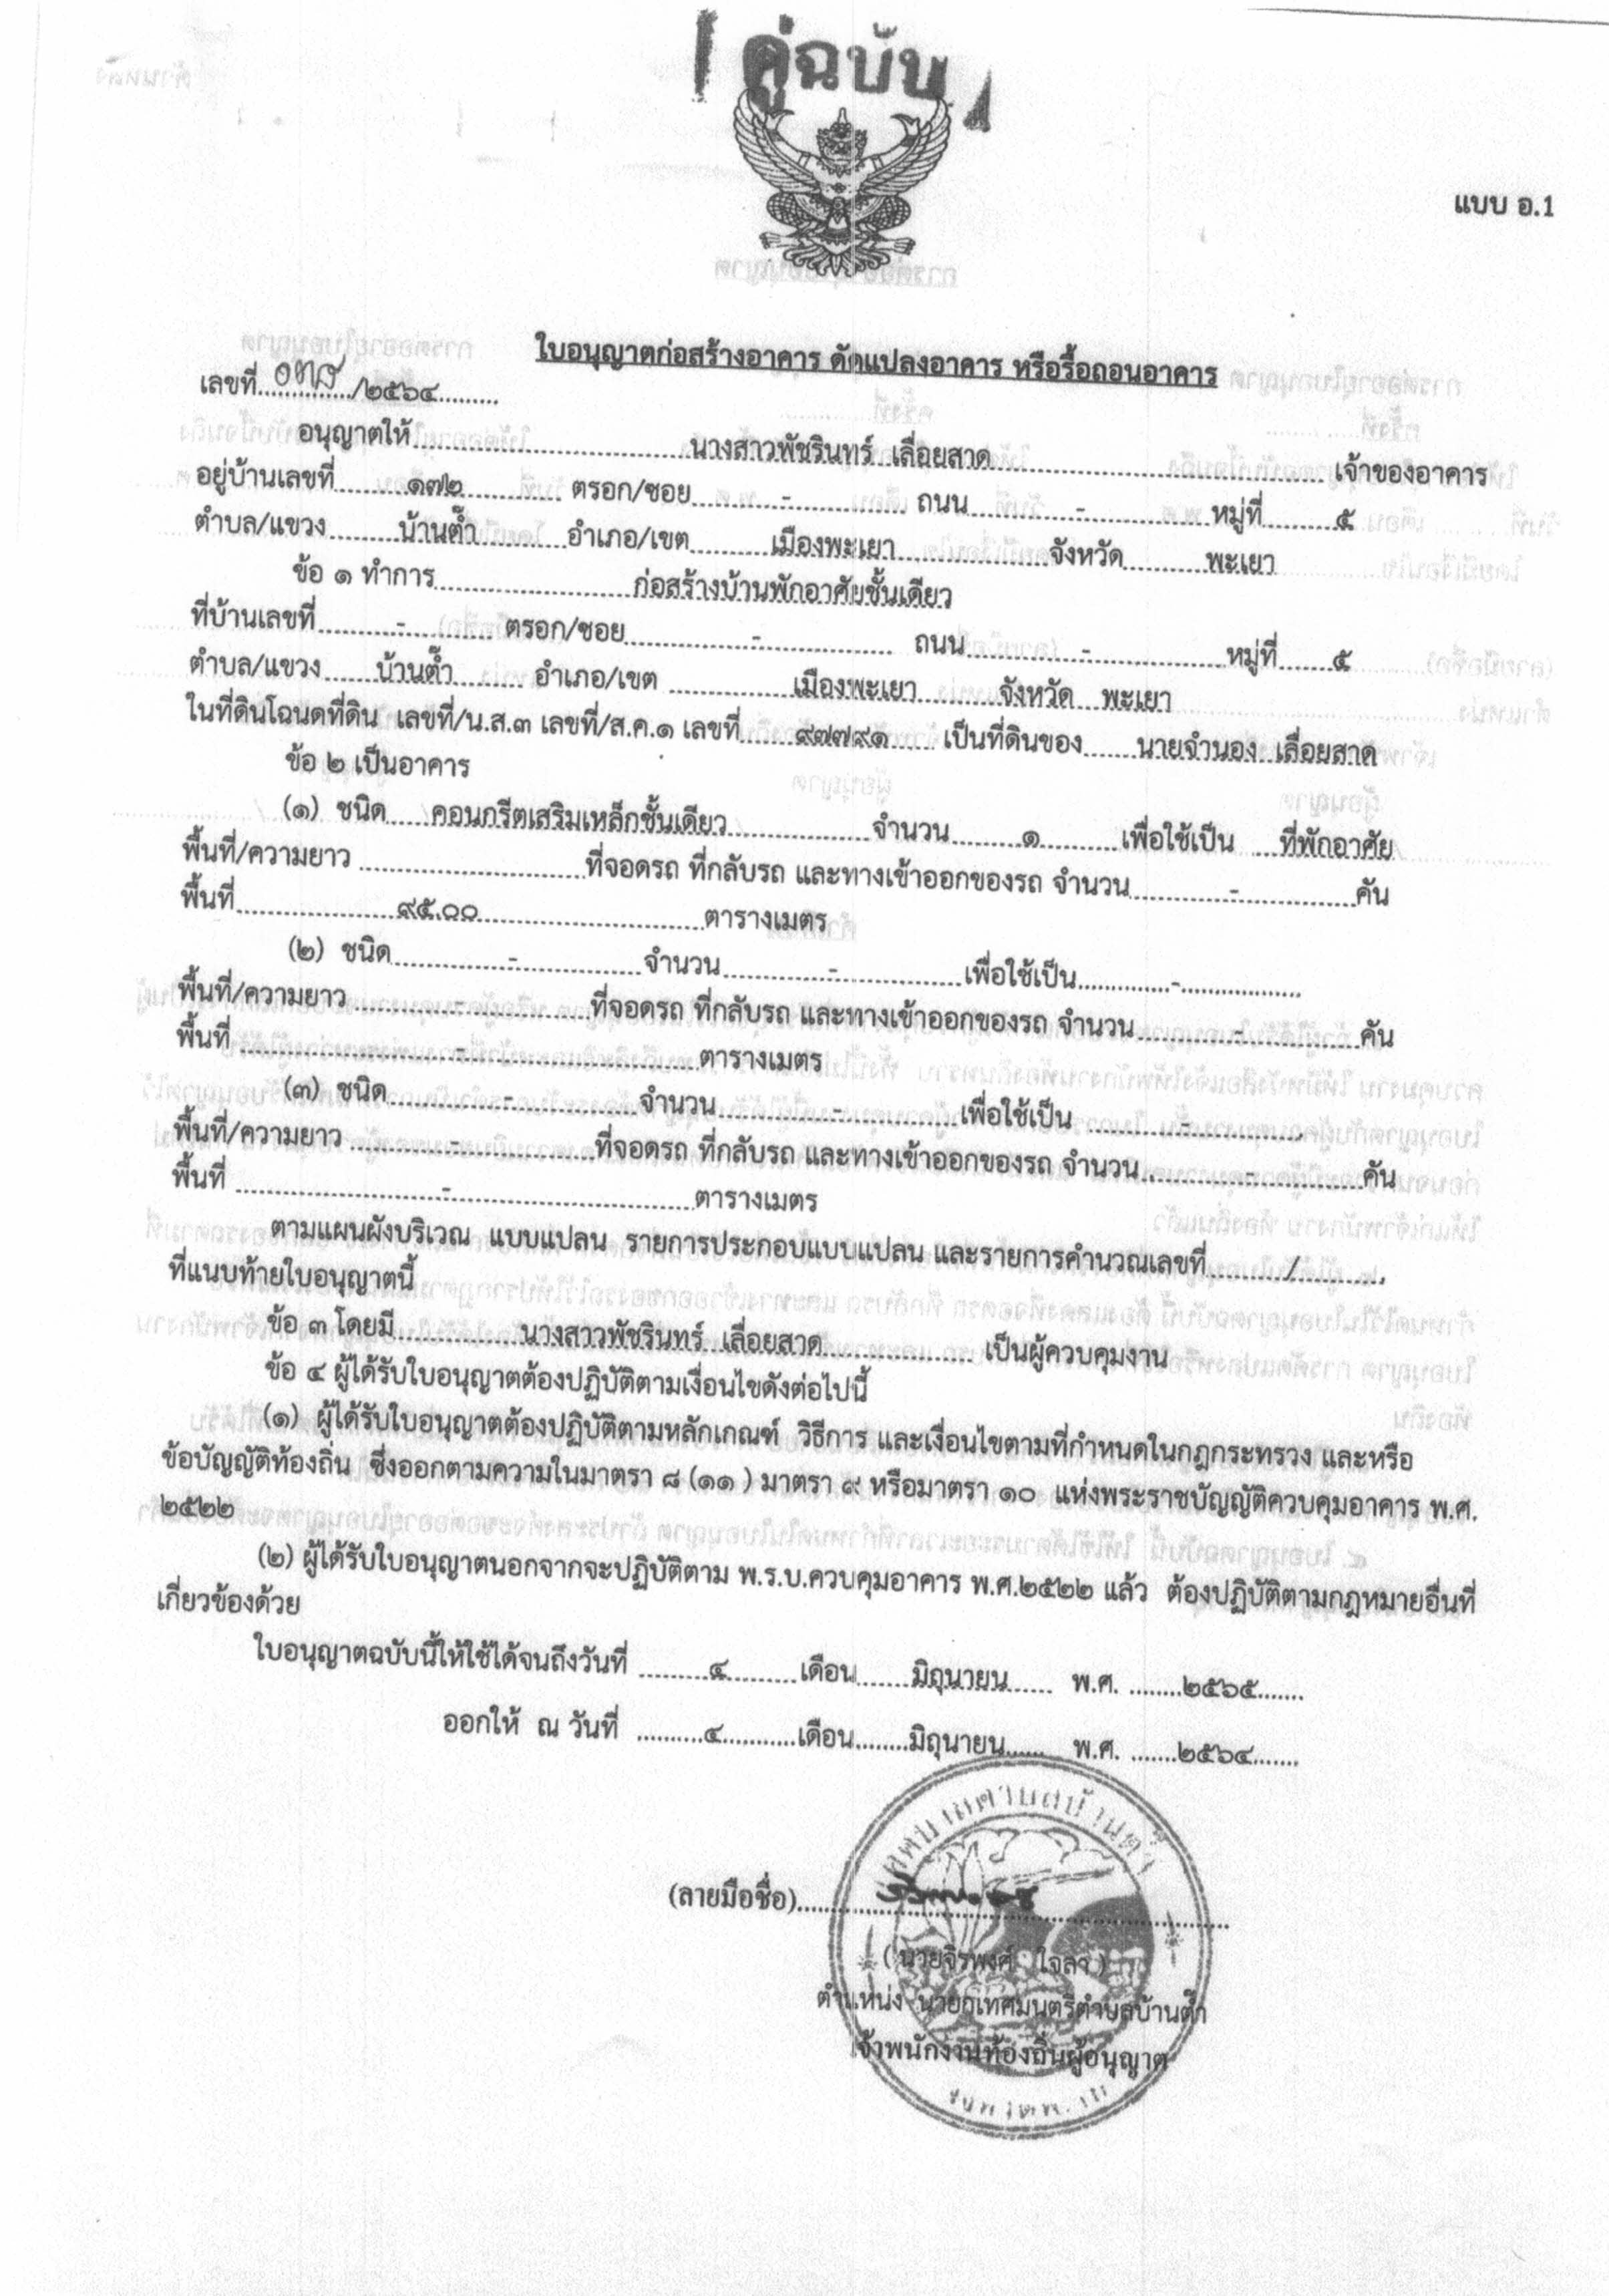 คู่ฉบับ
แบบ อ.1
ใบอนุญาตก่อสร้างอาคาร ดัดแปลงอาคาร หรือรื้อถอนอาคาร
เลขที่................/๒๕๖๔.........
อนุญาตให้................นางสาวพัชรินทร์ เลื่อยสาด................เจ้าของอาคาร
อยู่บ้านเลขที่.........๑๗๒............ ตรอก/ซอย............-............ ถนน............-............หมู่ที่.........๕
ตำบล/แขวง.........บ้านต๊ำ.........อำเภอ/เขต.........เมืองพะเยา............จังหวัด.........พะเยา
ข้อ ๑ ทำการ....................ก่อสร้างบ้านพักอาศัยชั้นเดียว
ที่บ้านเลขที่.........-......... ตรอก/ซอย............-............ ถนน............-............หมู่ที่......๕
ตำบล/แขวง......บ้านต๊ำ......... อำเภอ/เขต ............เมืองพะเยา.........จังหวัด...พะเยา
ในที่ดินโฉนดที่ดิน เลขที่/น.ส.๓ เลขที่/ส.ค.๑ เลขที่......๙๗๗๙๑...... เป็นที่ดินของ......นายจำนอง เลื่อยสาด
ข้อ ๒ เป็นอาคาร
(๑) ชนิด.....คอนกรีตเสริมเหล็กชั้นเดียว...............จำนวน.........๑.........เพื่อใช้เป็น ...ที่พักอาศัย
พื้นที่/ความยาว ...........................ที่จอดรถ ที่กลับรถ และทางเข้าออกของรถ จำนวน............-............คัน
พื้นที่....................๙๕.๐๐...........................ตารางเมตร
(๒) ชนิด...............-...............จำนวน...............-...............เพื่อใช้เป็น............-...............
พื้นที่/ความยาว ............-...............ที่จอดรถ ที่กลับรถ และทางเข้าออกของรถ จำนวน............-...............คัน
พื้นที่ ...........................-...........................ตารางเมตร
(๓) ชนิด...............-...............จำนวน...............-...............เพื่อใช้เป็น ............-...............
พื้นที่/ความยาว ............-...............ที่จอดรถ ที่กลับรถ และทางเข้าออกของรถ จำนวน............-...............คัน
พื้นที่ ...........................-...........................ตารางเมตร
ตามแผนผังบริเวณ แบบแปลน รายการประกอบแบบแปลน และรายการคำนวณเลขที่........../..........
ที่แนบท้ายใบอนุญาตนี้
ข้อ ๓ โดยมี...............นางสาวพัชรินทร์ เลื่อยสาด.................. เป็นผู้ควบคุมงาน
ข้อ ๔ ผู้ได้รับใบอนุญาตต้องปฏิบัติตามเงื่อนไขดังต่อไปนี้
(๑) ผู้ได้รับใบอนุญาตต้องปฏิบัติตามหลักเกณฑ์ วิธีการ และเงื่อนไขตามที่กำหนดในกฎกระทรวง และหรือ
ข้อบัญญัติท้องถิ่น ซึ่งออกตามความในมาตรา ๘ (๑๑ ) มาตรา ๙ หรือมาตรา ๑๐ แห่งพระราชบัญญัติควบคุมอาคาร พ.ศ.
๒๕๒๒
(๒) ผู้ได้รับใบอนุญาตนอกจากจะปฏิบัติตาม พ.ร.บ.ควบคุมอาคาร พ.ศ.๒๕๒๒ แล้ว ต้องปฏิบัติตามกฎหมายอื่นที่
เกี่ยวข้องด้วย
ใบอนุญาตฉบับนี้ให้ใช้ได้จนถึงวันที่ .........๔.........เดือน.......มิถุนายน...... พ.ศ. ........๒๕๖๕.......
ออกให้ ณ วันที่ .........๔..........เดือน........มิถุนายน...... พ.ศ. .......๒๕๖๔.......
เทศบาลตำบลบ้านต๊ำ
(ลายมือชื่อ)............................................................
( นายจิรพงศ์ ใจลา )
ตำแหน่ง นายกเทศมนตรีตำบลบ้านต๊ำ
เจ้าพนักงานท้องถิ่นผู้อนุญาต